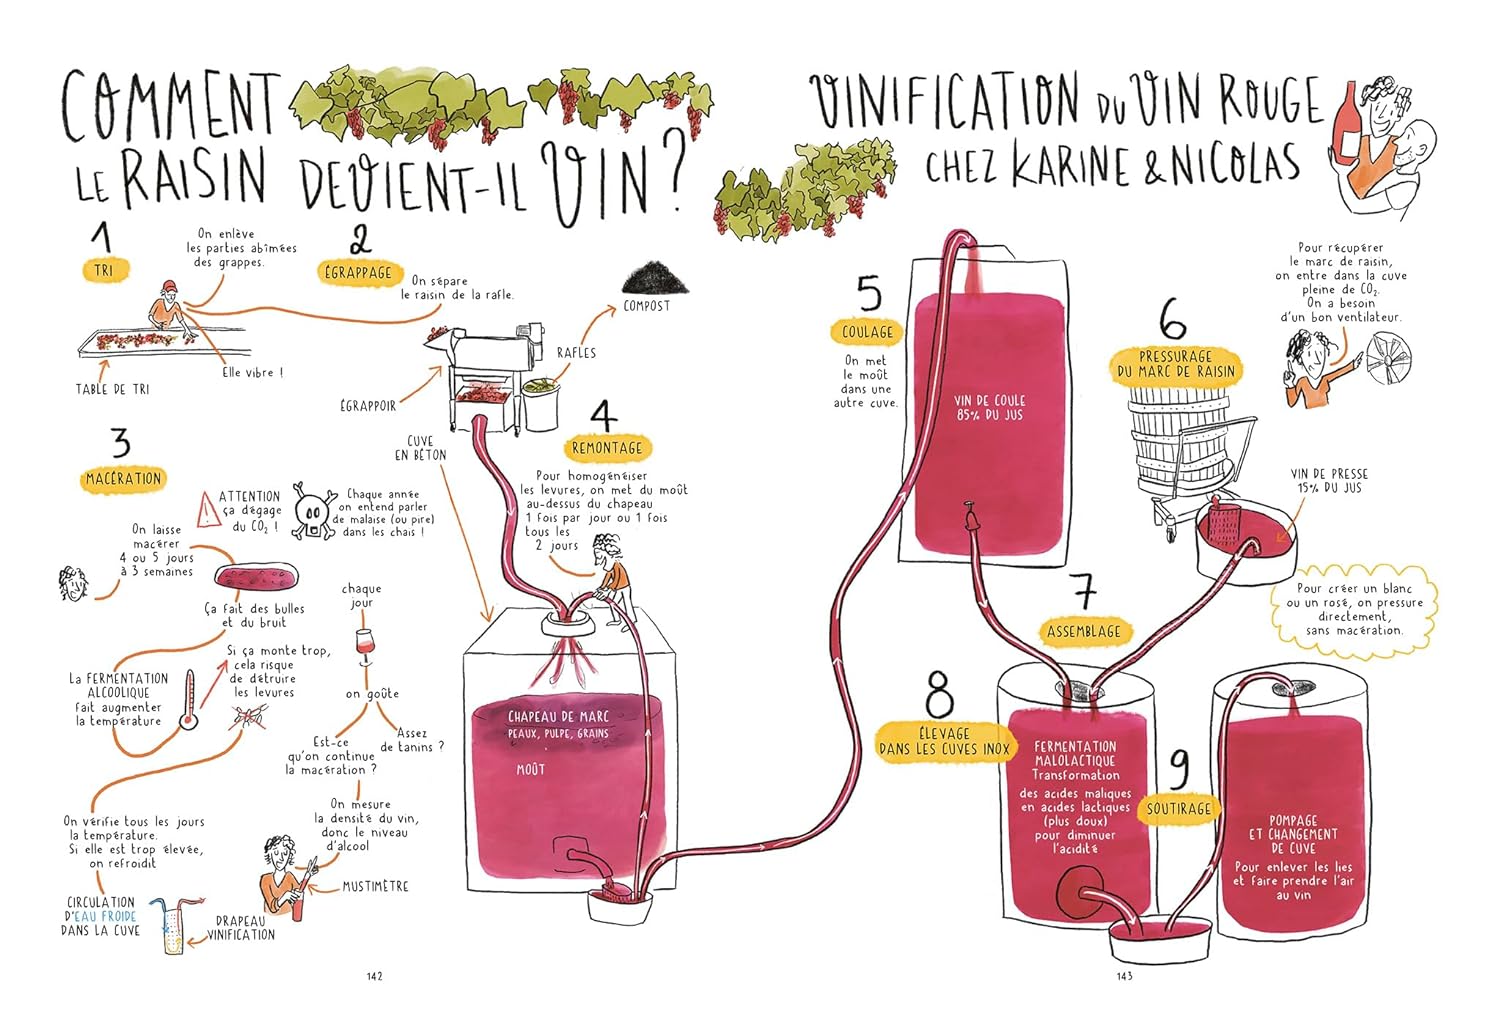 COMMENT
LE RAISIN DEVIENT-IL VIN ?
1
TRI
On enlève
les parties abîmées
des grappes.
Elle vibre !
TABLE DE TRI
2
ÉGRAPPAGE
On sépare
le raisin de la rafle.
COMPOST
RAFLES
ÉGRAPPOIR
3
MACÉRATION
ATTENTION
ça dégage
du CO₂ !
Chaque année
on entend parler
de malaise (ou pire)
dans les chais !
On laisse
macérer
4 ou 5 jours
à 3 semaines
Ça fait des bulles
et du bruit
La FERMENTATION
ALCOOLIQUE
fait augmenter
la température
Si ça monte trop,
cela risque
de détruire
les levures
On vérifie tous les jours
la température.
Si elle est trop élevée,
on refroidit
CIRCULATION
D'EAU FROIDE
DANS LA CUVE
DRAPEAU
VINIFICATION
chaque
jour
on goûte
Est-ce
qu'on continue
la macération ?
Assez
de tanins ?
On mesure
la densité du vin,
donc le niveau
d'alcool
MUSTIMÈTRE
CUVE
EN BÉTON
4
REMONTAGE
Pour homogénéiser
les levures, on met du moût
au-dessus du chapeau
1 fois par jour ou 1 fois
tous les
2 jours
CHAPEAU DE MARC
PEAUX, PULPE, GRAINS
MOÛT
142
VINIFICATION DU VIN ROUGE
CHEZ KARINE & NICOLAS
5
COULAGE
On met
le moût
dans une
autre cuve.
VIN DE COULE
85% DU JUS
6
PRESSURAGE
DU MARC DE RAISIN
Pour récupérer
le marc de raisin,
on entre dans la cuve
pleine de CO₂.
On a besoin
d'un bon ventilateur.
VIN DE PRESSE
15% DU JUS
Pour créer un blanc
ou un rosé, on pressure
directement,
sans macération.
7
ASSEMBLAGE
8
ÉLEVAGE
DANS LES CUVES INOX
FERMENTATION
MALOLACTIQUE
Transformation
des acides maliques
en acides lactiques
(plus doux)
pour diminuer
l'acidité
9
SOUTIRAGE
POMPAGE
ET CHANGEMENT
DE CUVE
Pour enlever les lies
et faire prendre l'air
au vin
143